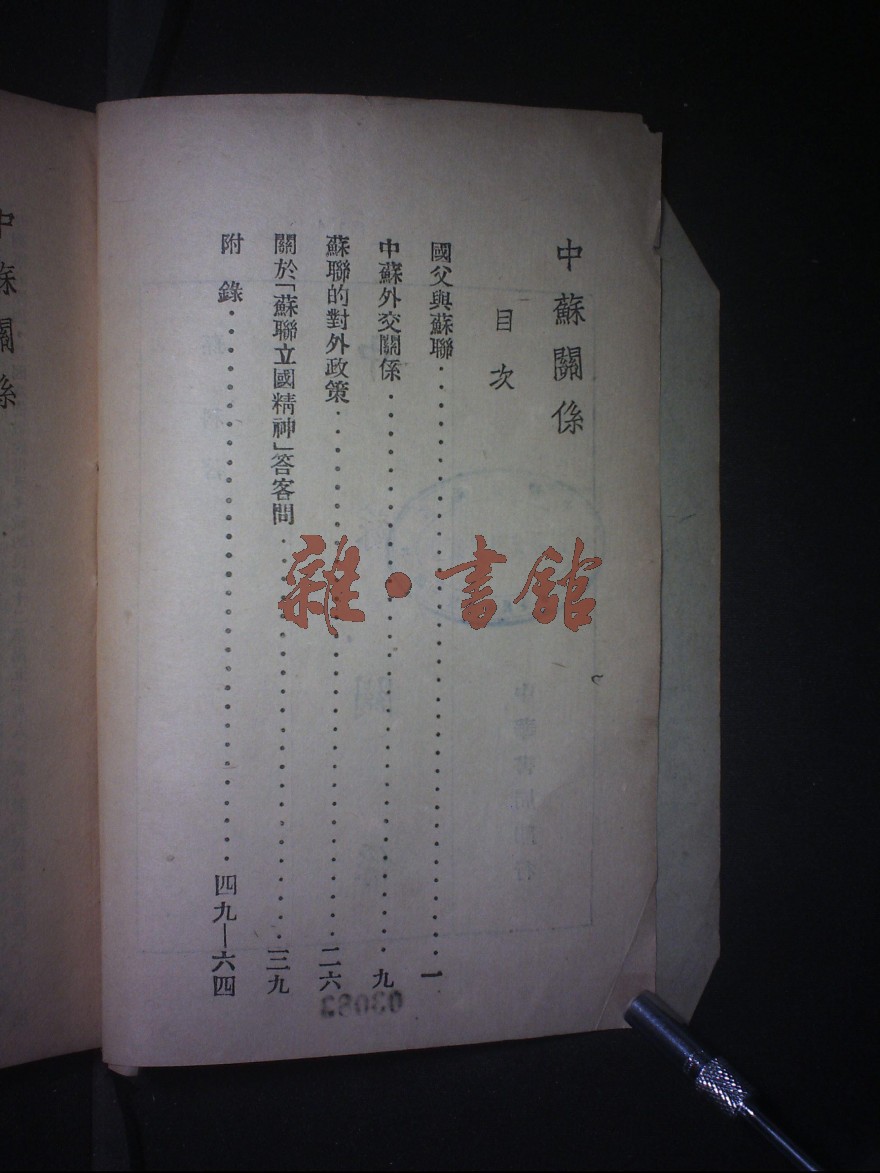 中蘇關係
目次
國父與蘇聯……………………一
中蘇外交關係……………………九
蘇聯的對外政策……………………二六
關於「蘇聯立國精神」答客問……………………三九
附錄……………………四九—六四
雜·書館
中蘇關係
03083